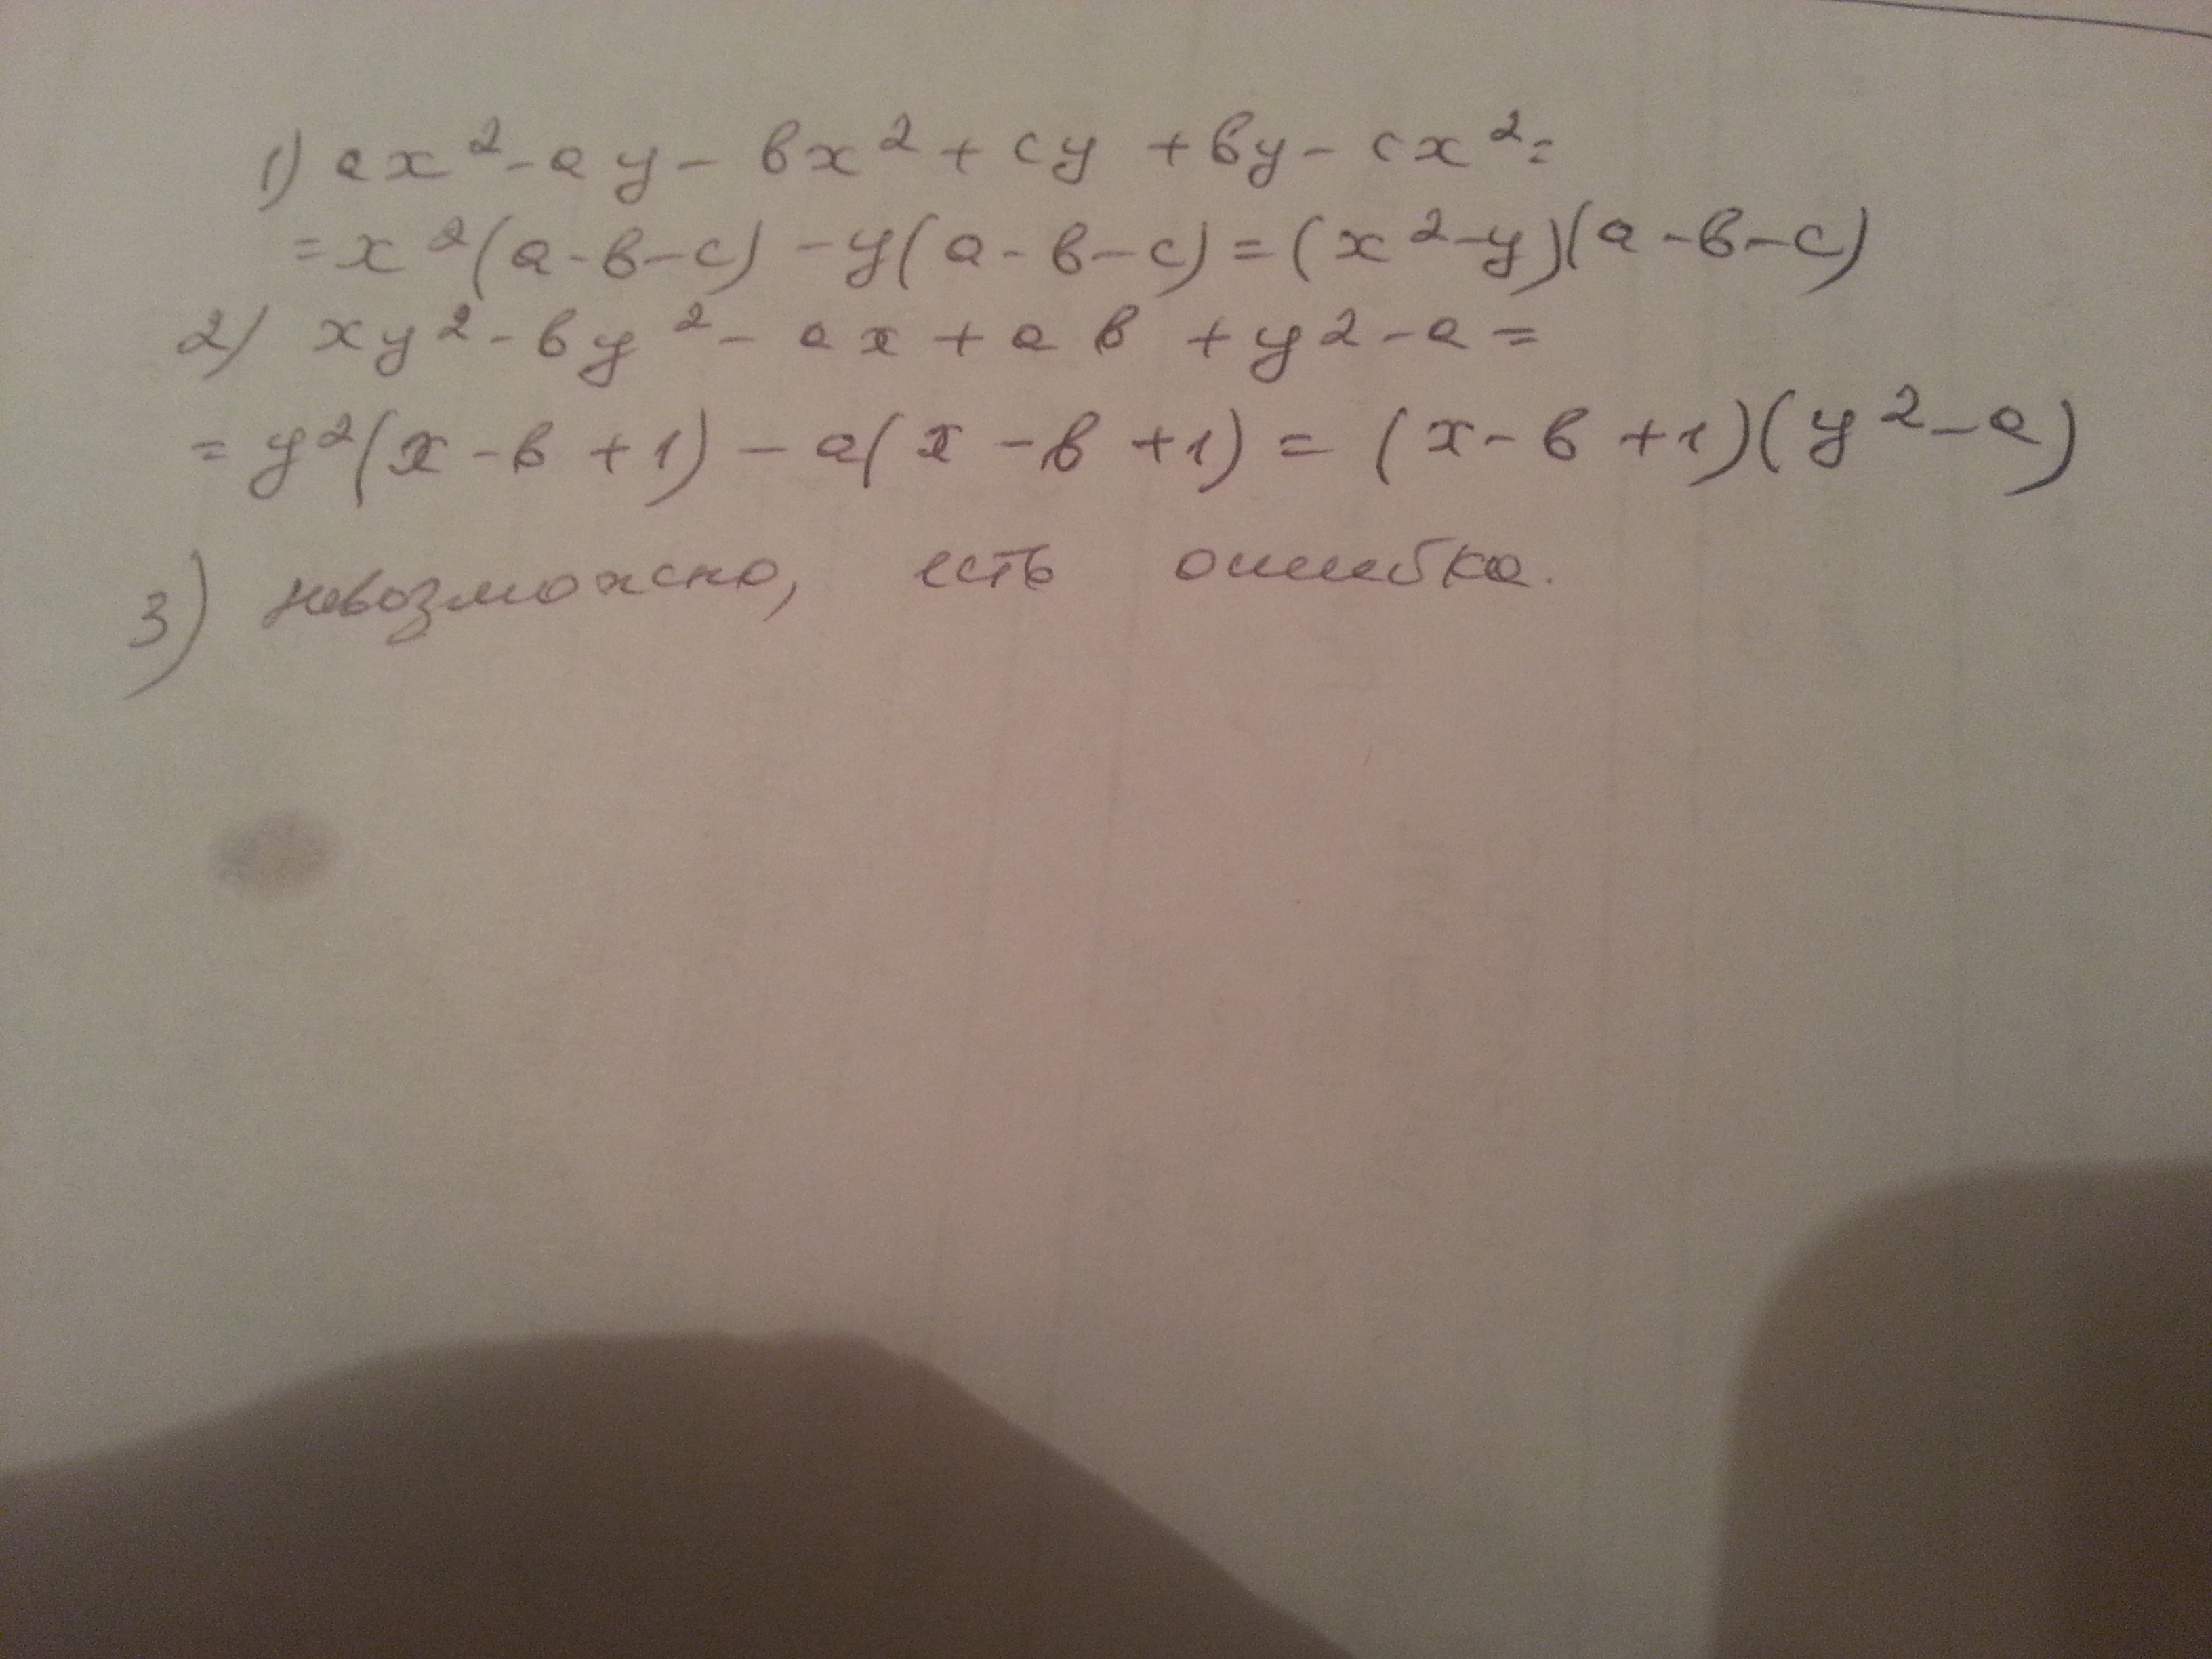 1) ax²-ay-bx²+cy+by-cx²=
=x²(a-b-c)-y(a-b-c)=(x²-y)(a-b-c)
2) xy²-by²-ax+ab+y²-a=
=y²(x-b+1)-a(x-b+1)=(x-b+1)(y²-a)
3) невозможно, есть ошибка.